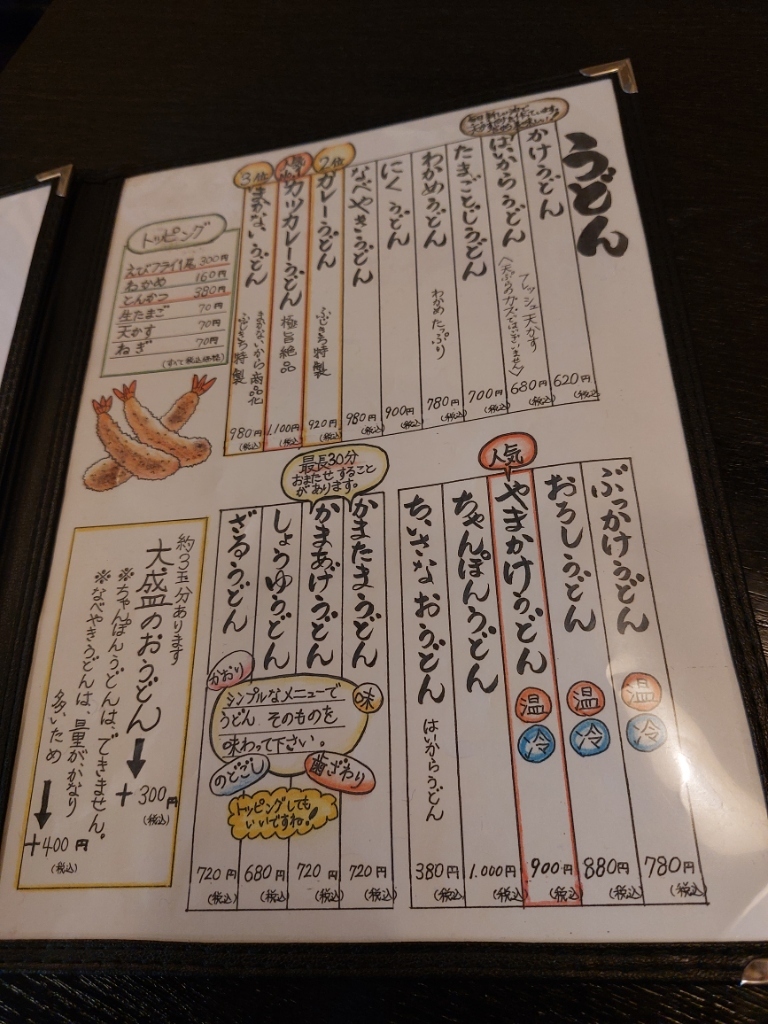 うどん
かけうどん
620円
(税込)
はいからうどん
フレッシュ天かす
(天ぷらのカスではございません)
680円
(税込)
たまごとじうどん
700円
(税込)
わかめうどん
わかめたっぷり
780円
(税込)
にくうどん
900円
(税込)
なべやきうどん
980円
(税込)
2位
カレーうどん
ふじきち特製
920円
(税込)
人気
カツカレーうどん
極旨絶品
1,100円
(税込)
3位
まかないうどん
まかないから商品化
ふじきち特製
980円
(税込)
トッピング
えびフライ1尾 300円
わかめ 160円
とんかつ 380円
生たまご 70円
天かす 70円
ねぎ 70円
(すべて税込価格)
ぶっかけうどん
温
冷
780円
(税込)
おろしうどん
温
冷
880円
(税込)
人気
やまかけうどん
温
冷
900円
(税込)
ちゃんぽんうどん
1,000円
(税込)
ちいさなおうどん
はいからうどん
380円
(税込)
最長30分
おまたせすること
があります。
かまたまうどん
720円
(税込)
かまあげうどん
720円
(税込)
しょうゆうどん
680円
(税込)
ざるうどん
720円
(税込)
かおり
味
シンプルなメニューで
うどん そのものを
味わって下さい。
のどごし
歯ざわり
トッピングしても
いいですね!
約3玉分あります
大盛のおうどん
+300円
(税込)
※ちゃんぽんうどんはできません。
※なべやきうどんは、量がかなり
多いため
+400円
(税込)